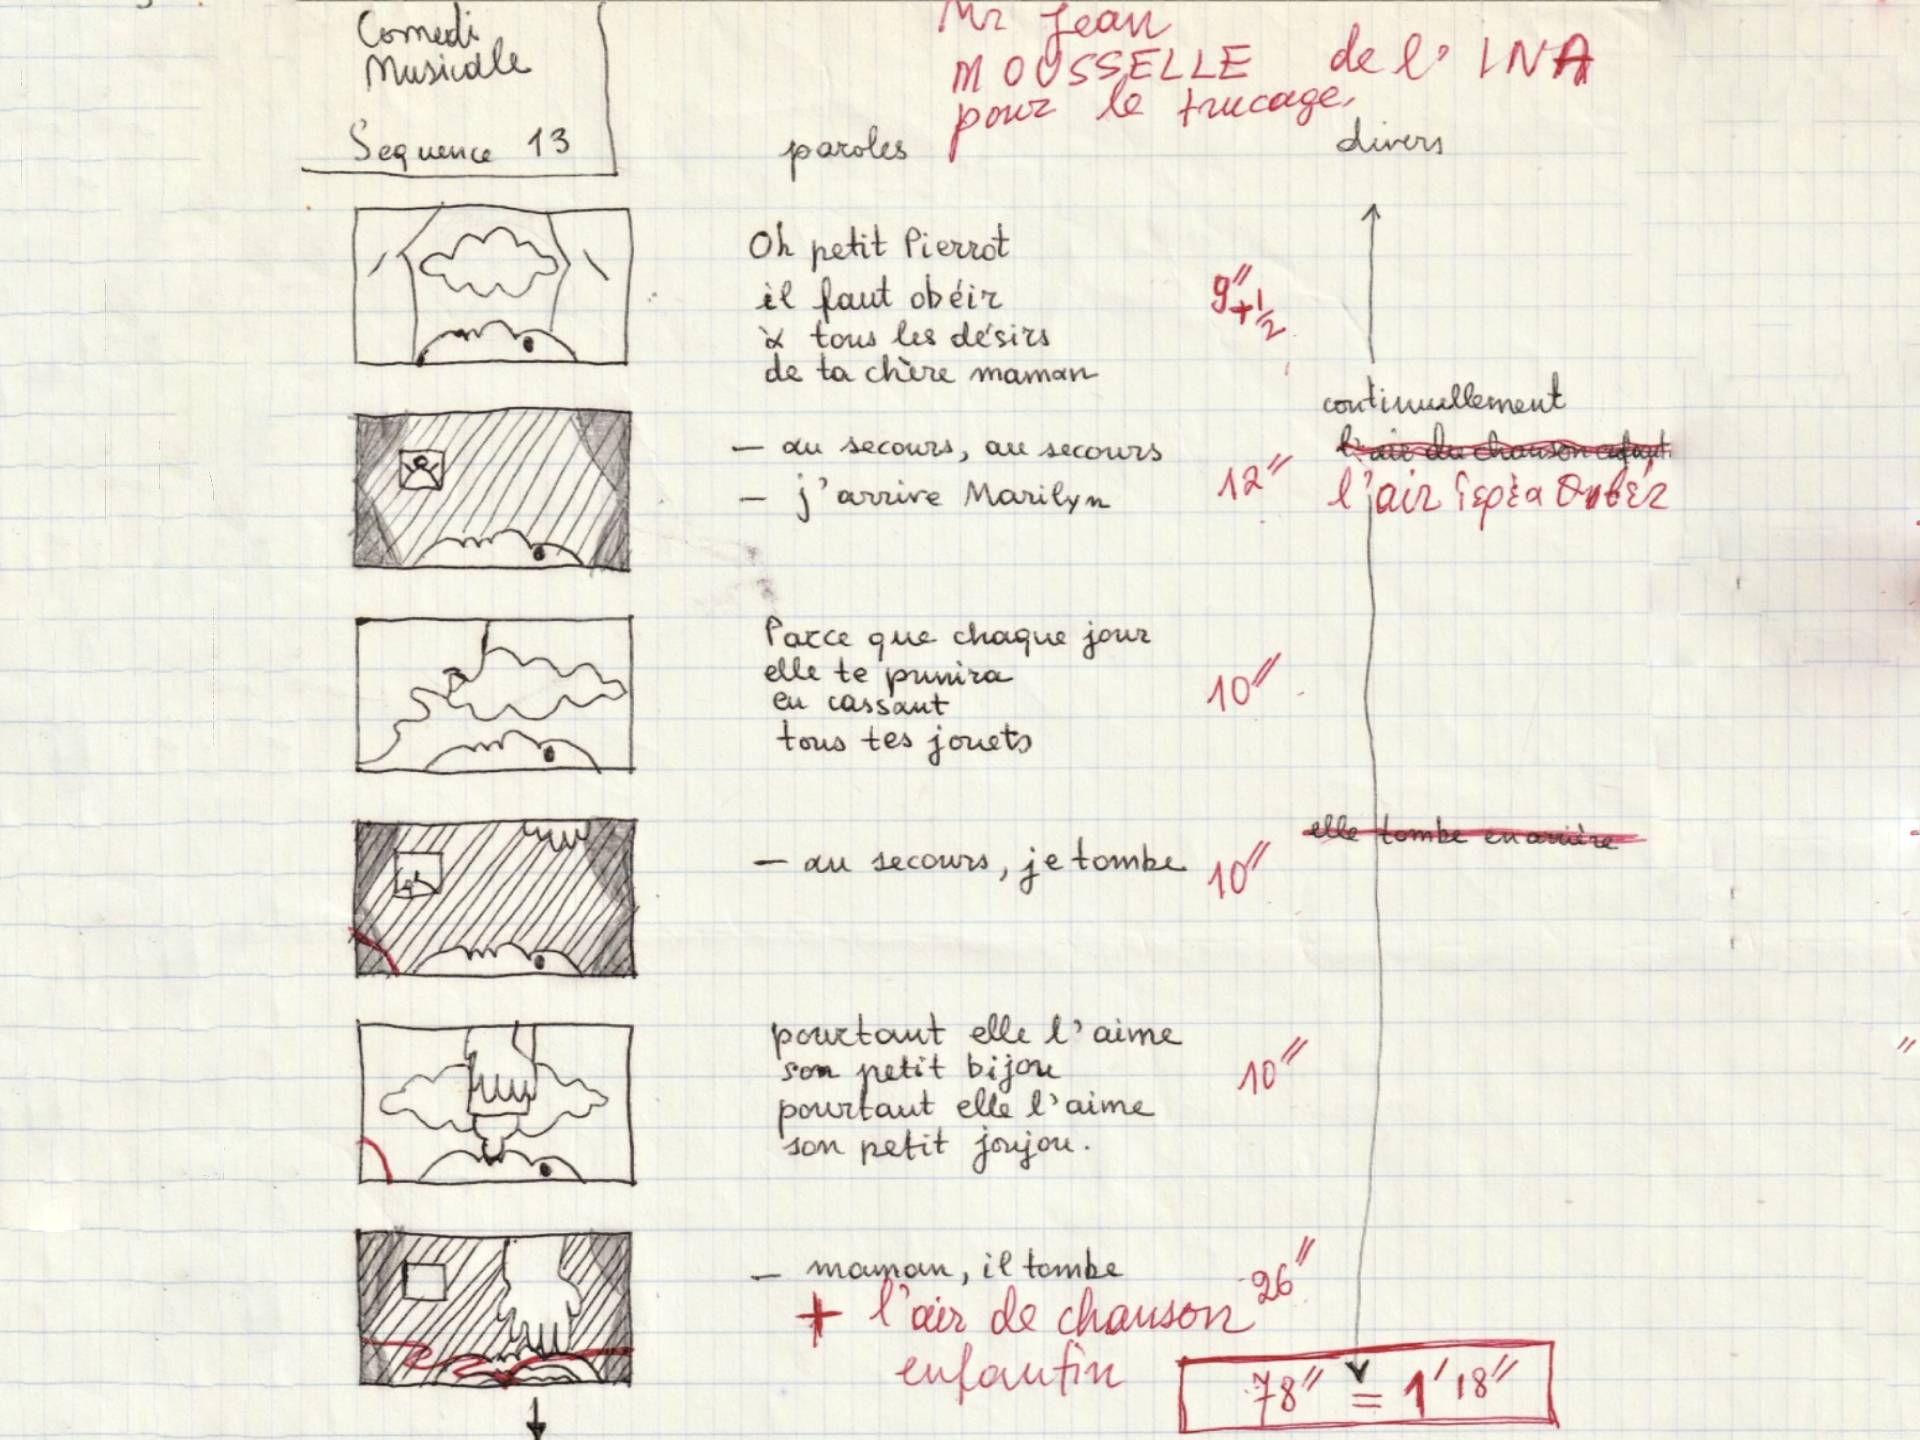 Comedi
Musicale
Sequence 13
Mr Jean
MOUSSELLE de l' INA
pour le trucage,
paroles
divers
Oh petit Pierrot
il faut obéir
à tous les désirs
de ta chère maman
9"+1/2
continuellement
l'air du chanson enfant
l'air
— au secours, au secours
— j'arrive Marilyn
12"
Parce que chaque jour
elle te punira
en cassant
tous tes jouets
10"
elle tombe en arrière
— au secours, je tombe
10"
pourtant elle l'aime
son petit bijou
pourtant elle l'aime
son petit joujou.
10"
— maman, il tombe
26"
+ l'air de chanson
enfantin
78" = 1'18"